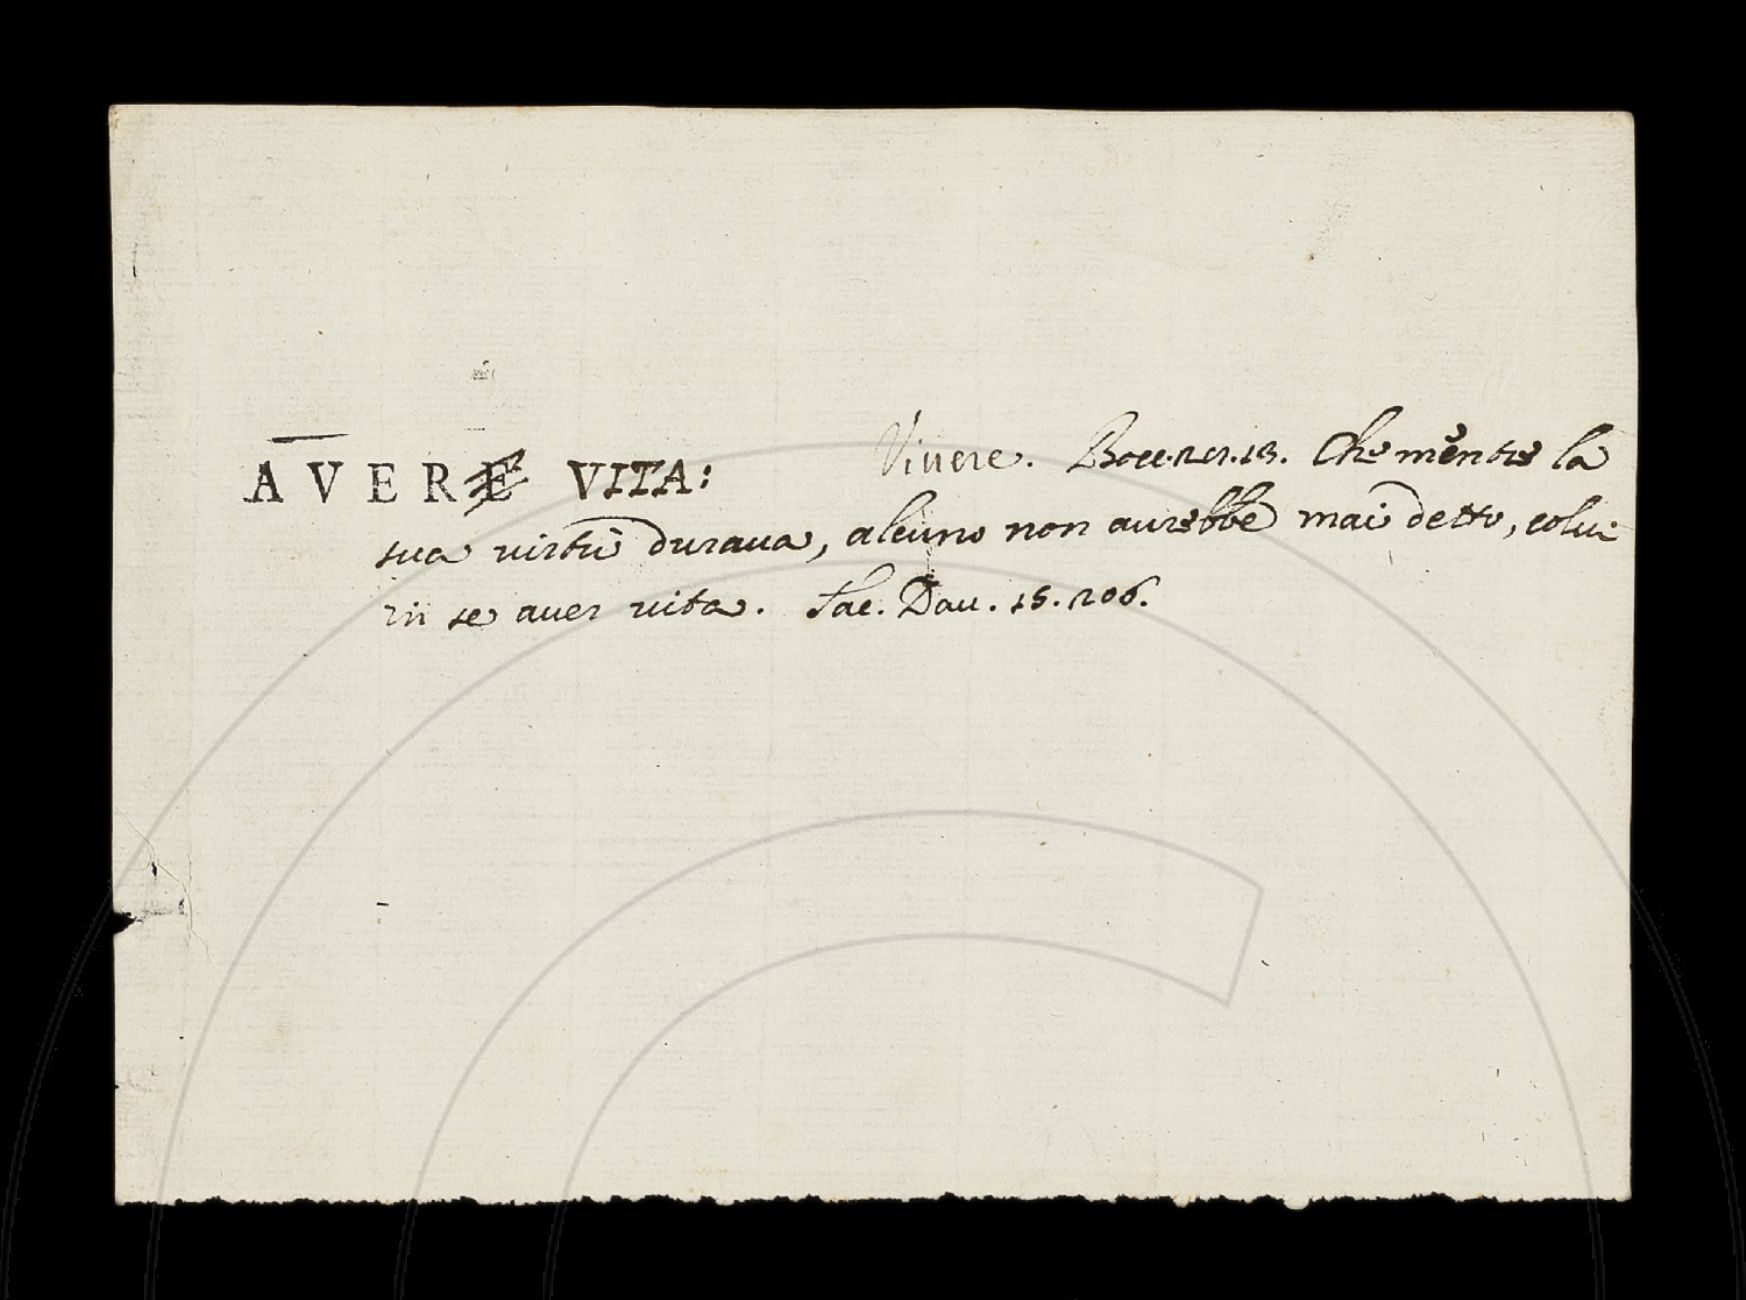 AVERE VITA: Vivere. Bocc. nov. 13. Che mentre la
sua virtù durava, alcuno non avrebbe mai detto, colui
in se aver vita. Tac. Dav. 15. 206.